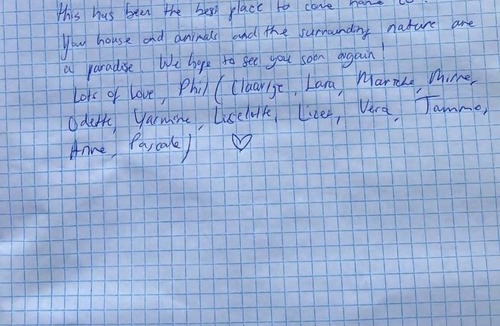 This has been the best place to come home to.
Your house and animals and the surrounding nature are
a paradise. We hope to see you soon again!
Lots of love, Phil (Claartje, Lara, Marieke, Minne,
Odette, Yasmine, Liselotte, Lizes, Vera, Tammo,
Anne, Pascale) ♡